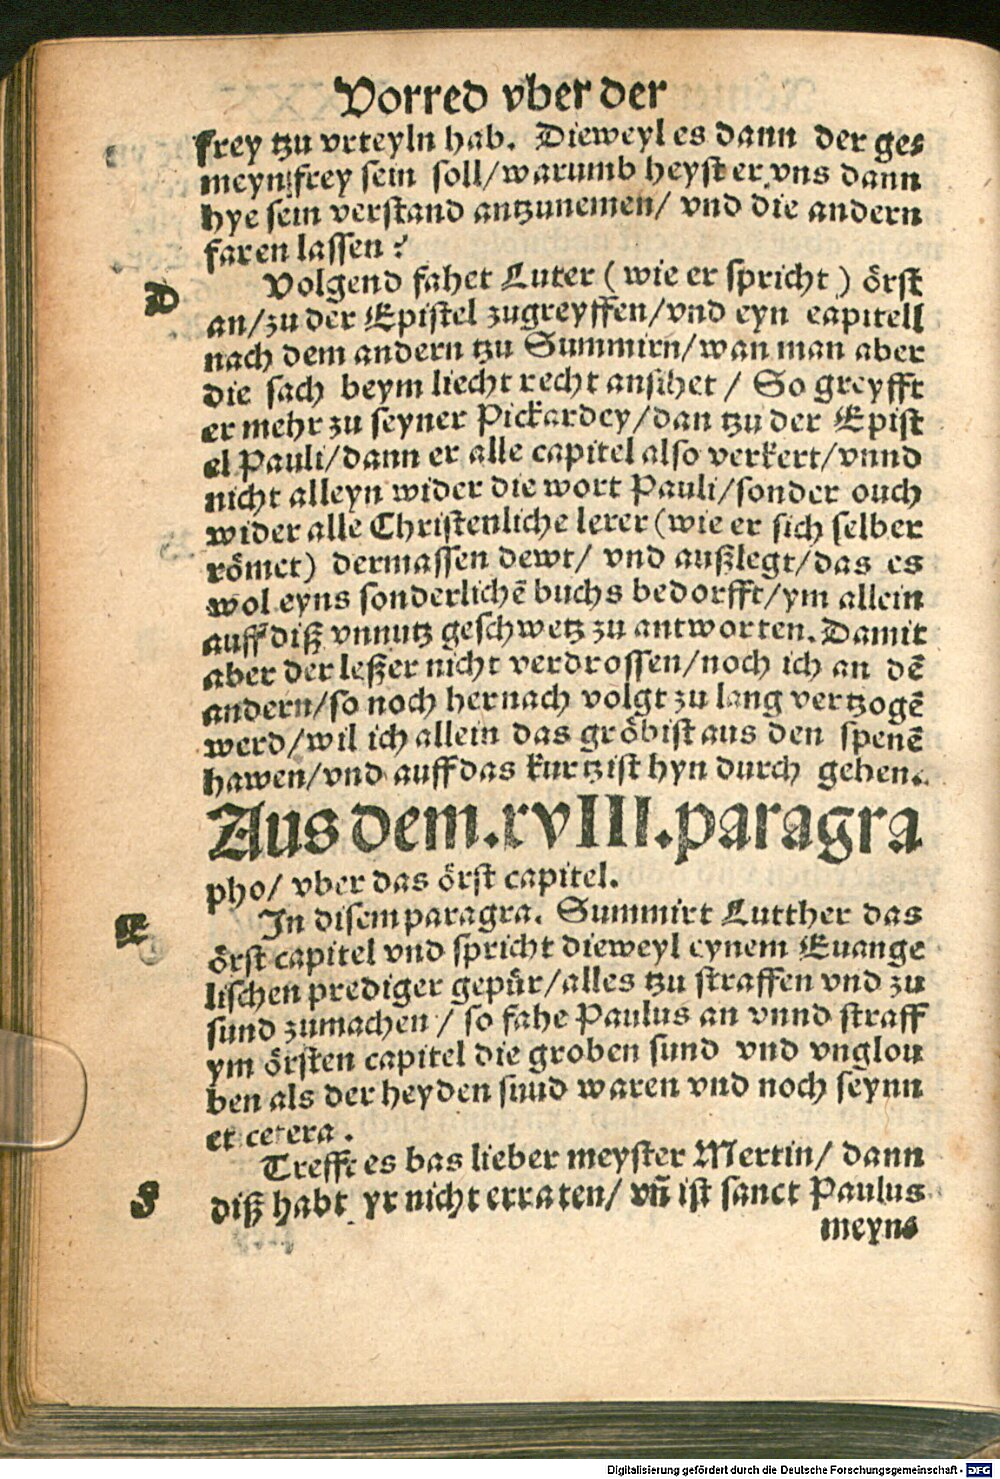 Vorred vber der
frey tzu vrteyln hab. Dieweyl es dann der ge⸗
meyn frey sein soll/warumb heyst er vns dann
hye sein verstand antzunemen/ vnd die andern
faren lassen?
D
Volgend fahet Luter (wie er spricht) örst
an/zu der Epistel zugreyffen/vnd eyn capitell
nach dem andern tzu Summirn/wan man aber
die sach beym liecht recht ansihet / So greyfft
er mehr zu seyner Pickardey/dan tzu der Epist
el Pauli/dann er alle capitel also verkert/vnnd
nicht alleyn wider die wort Pauli/sonder ouch
wider alle Christenliche lerer (wie er sich selber
römet) dermassen dewt/ vnd außlegt/das es
wol eyns sonderlichē buchs bedorfft/ym allein
auff diß vnnutz geschwetz zu antworten. Damit
aber der leßer nicht verdrossen/noch ich an dē
andern/so noch hernach volgt zu lang vertzogē
werd/wil ich allein das gröbist aus den spenē
hawen/vnd auff das kurtzist hyn durch gehen.
Aus dem.xvIII.paragra
pho/ vber das örst capitel.
E
In disem paragra. Summirt Lutther das
örst capitel vnd spricht dieweyl eynem Euange
lischen prediger gepür/alles tzu straffen vnd zu
sund zumachen/ so fahe Paulus an vnnd straff
ym örsten capitel die groben sund vnd vnglou
ben als der heyden sund waren vnd noch seynn
et cetera.
Trefft es bas lieber meyster Mertin/ dann
F
diß habt yr nicht erraten/ vn̄ ist sanct Paulus
meyns
Digitalisierung gefördert durch die Deutsche Forschungsgemeinschaft - DFG